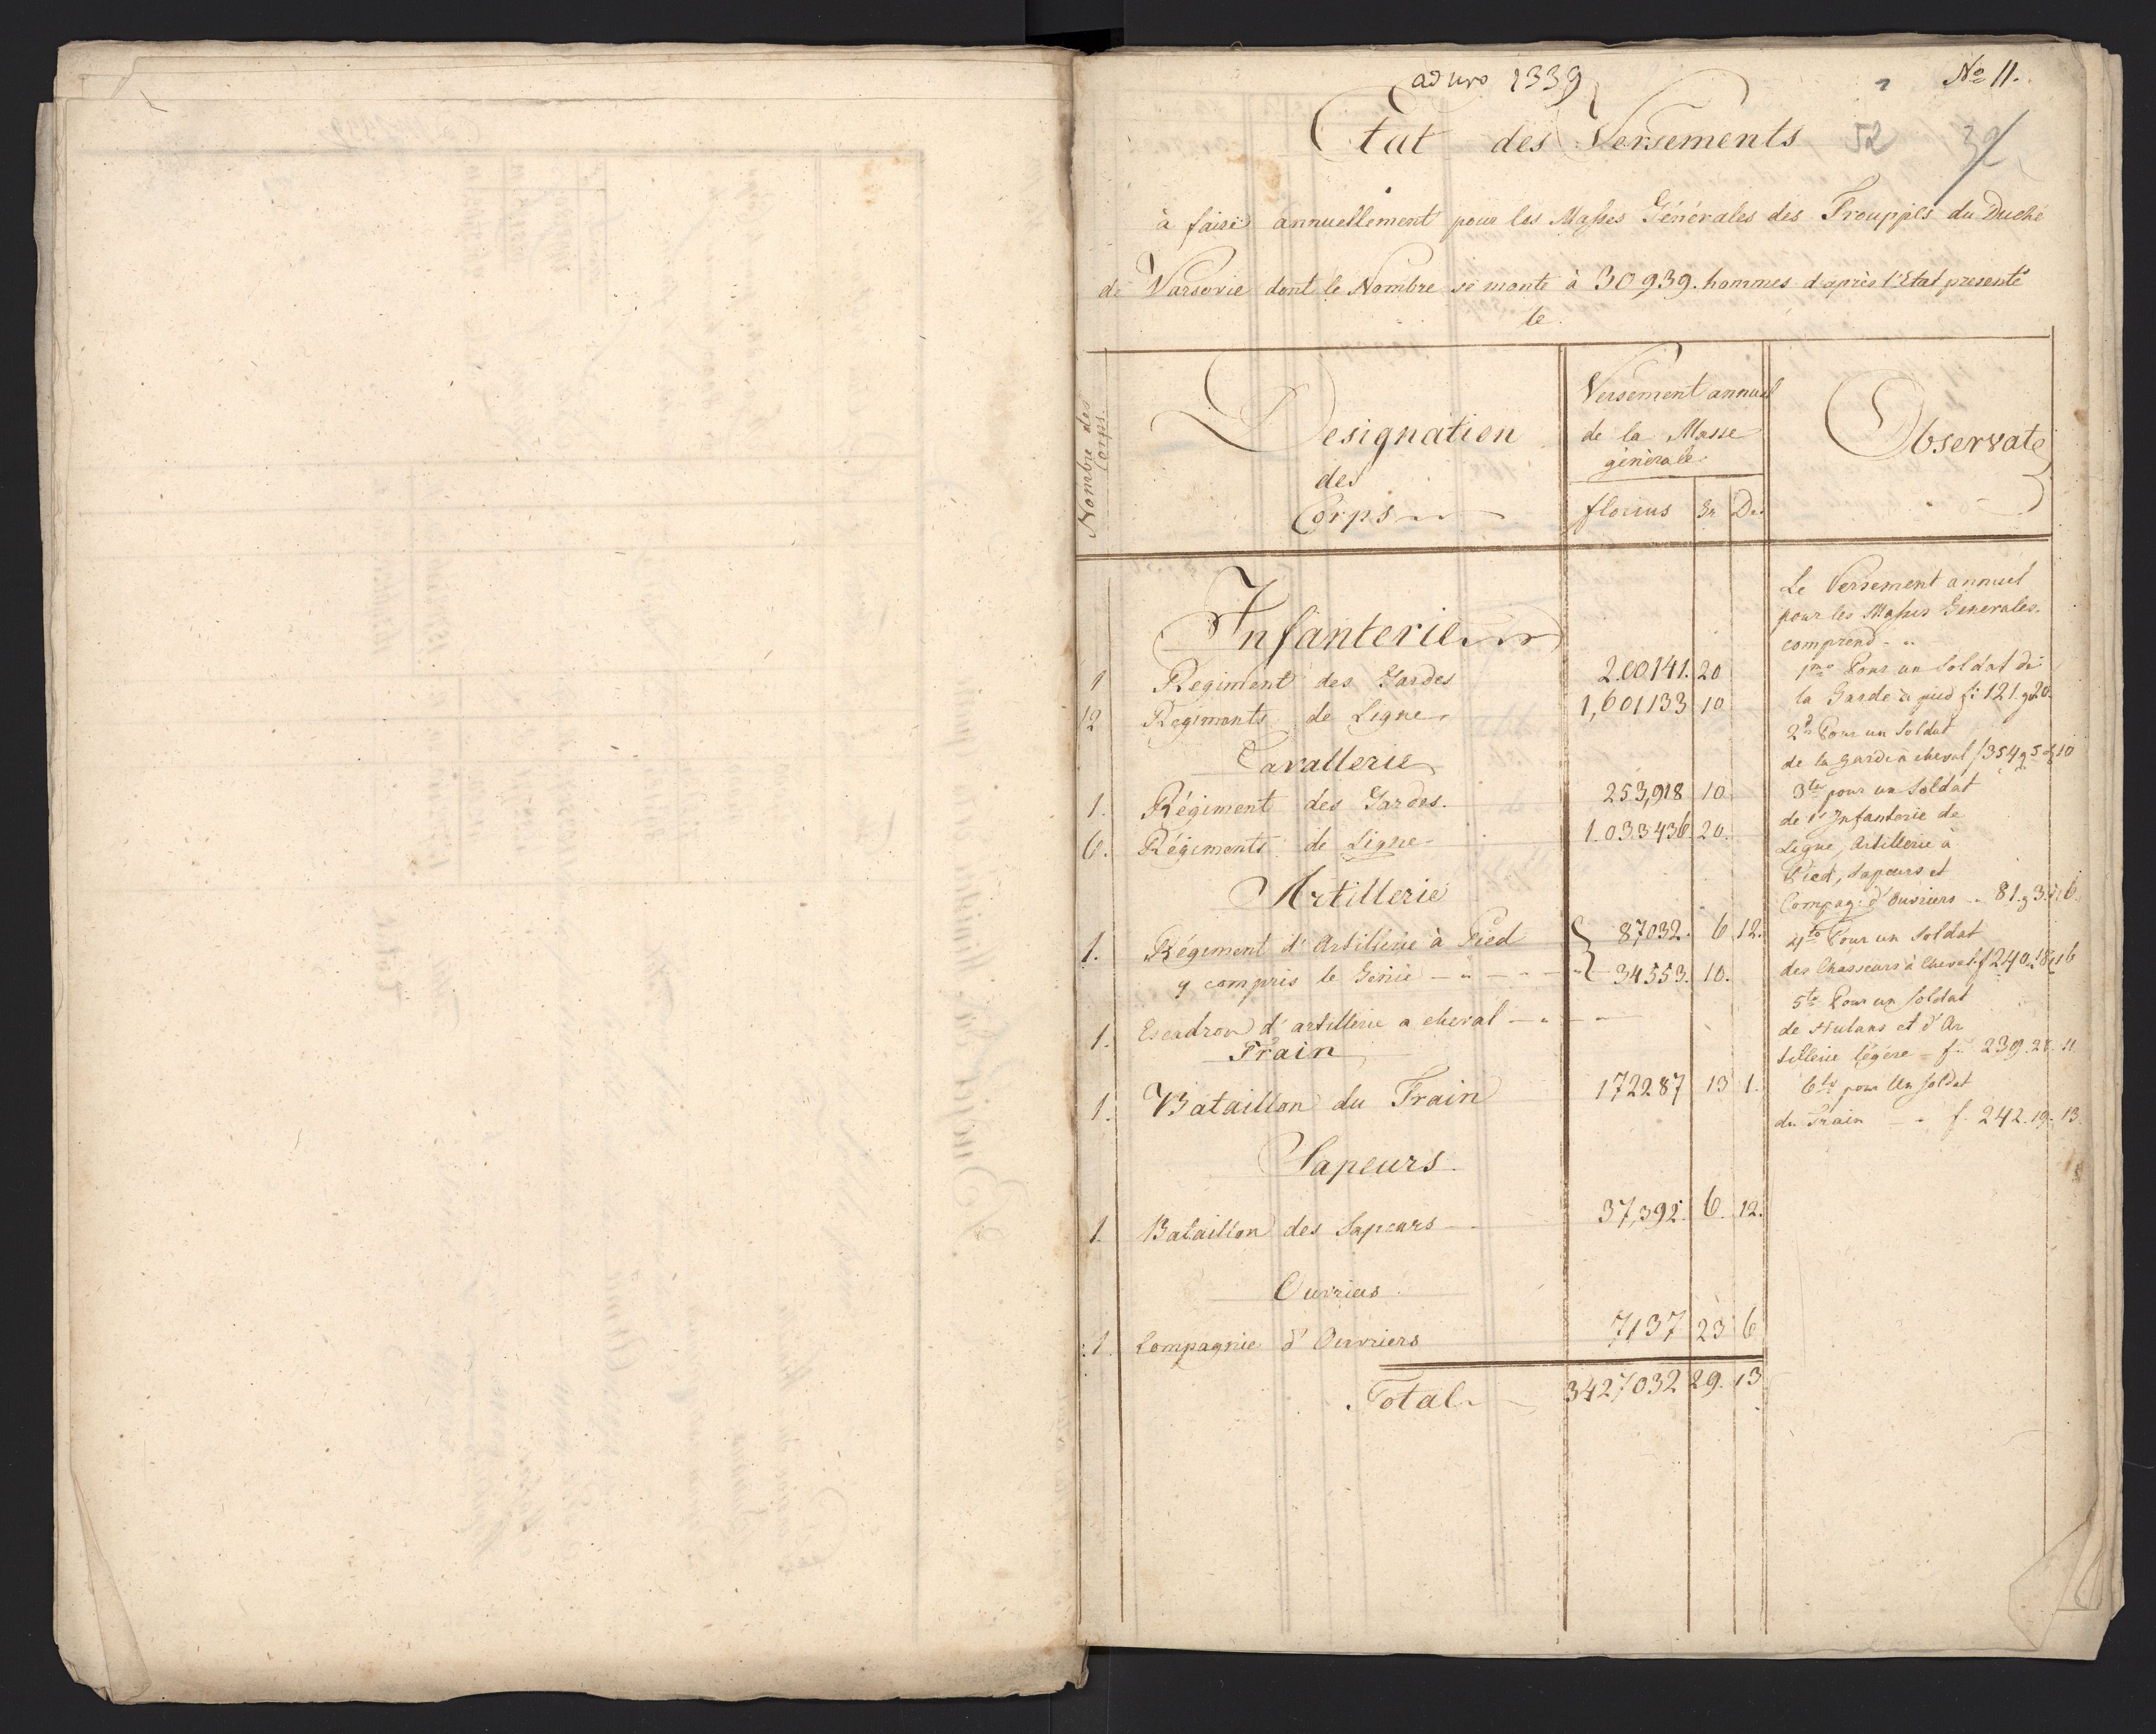 ad nro 1339
No 11.
52 32
Etat des Versements
à faire annuellement pour les Masses Générales des Trouppes du Duché
de Varsovie dont le Nombre se monte à 30939. hommes d'après l'Etat presenté
le
Nombre des Corps.
Designation des Corps
Versement annuel de la Masse générale
florins Gr D.
Observate
Infanterie
1 Regiment des Gardes 200141. 20
12 Regiments de Ligne 1,601133 10
Cavallerie
1. Régiment des Gardes. 253,918 10
6. Régiments de Ligne 1.033436 20.
Artillerie
1. Régiment d'Artillerie à Pied 87032. 6 12.
y compris le Génie 34553. 10.
1. Escadron d'artillerie a cheval
Train
1. Bataillon du Train 172287 13 1.
Sapeurs.
1 Bataillon des Sapeurs 37,392. 6. 12.
Ouvriers
1. Compagnie d'Ouvriers 7137 23 6
Total 3427032 29. 13
Le Versement annuel
pour les Masses Generales
comprend
1mo Pour un Soldat de
la Garde à pied f: 121. g 20.
2do Pour un Soldat
de la garde à cheval f 354 g 5 d 10
3tio pour un Soldat
de l'Infanterie de
Ligne, Artillerie à
Pied, Sapeurs et
Compag: d'Ouvriers 81. g 3. d 6.
4to Pour un Soldat
des Chasseurs à Cheval f 240. 18. 16
5to Pour un Soldat
de Hulans et d'Ar
tillerie légére f. 239. 28. 11.
6to pour Un Soldat
du Train f. 242. 19. 13.